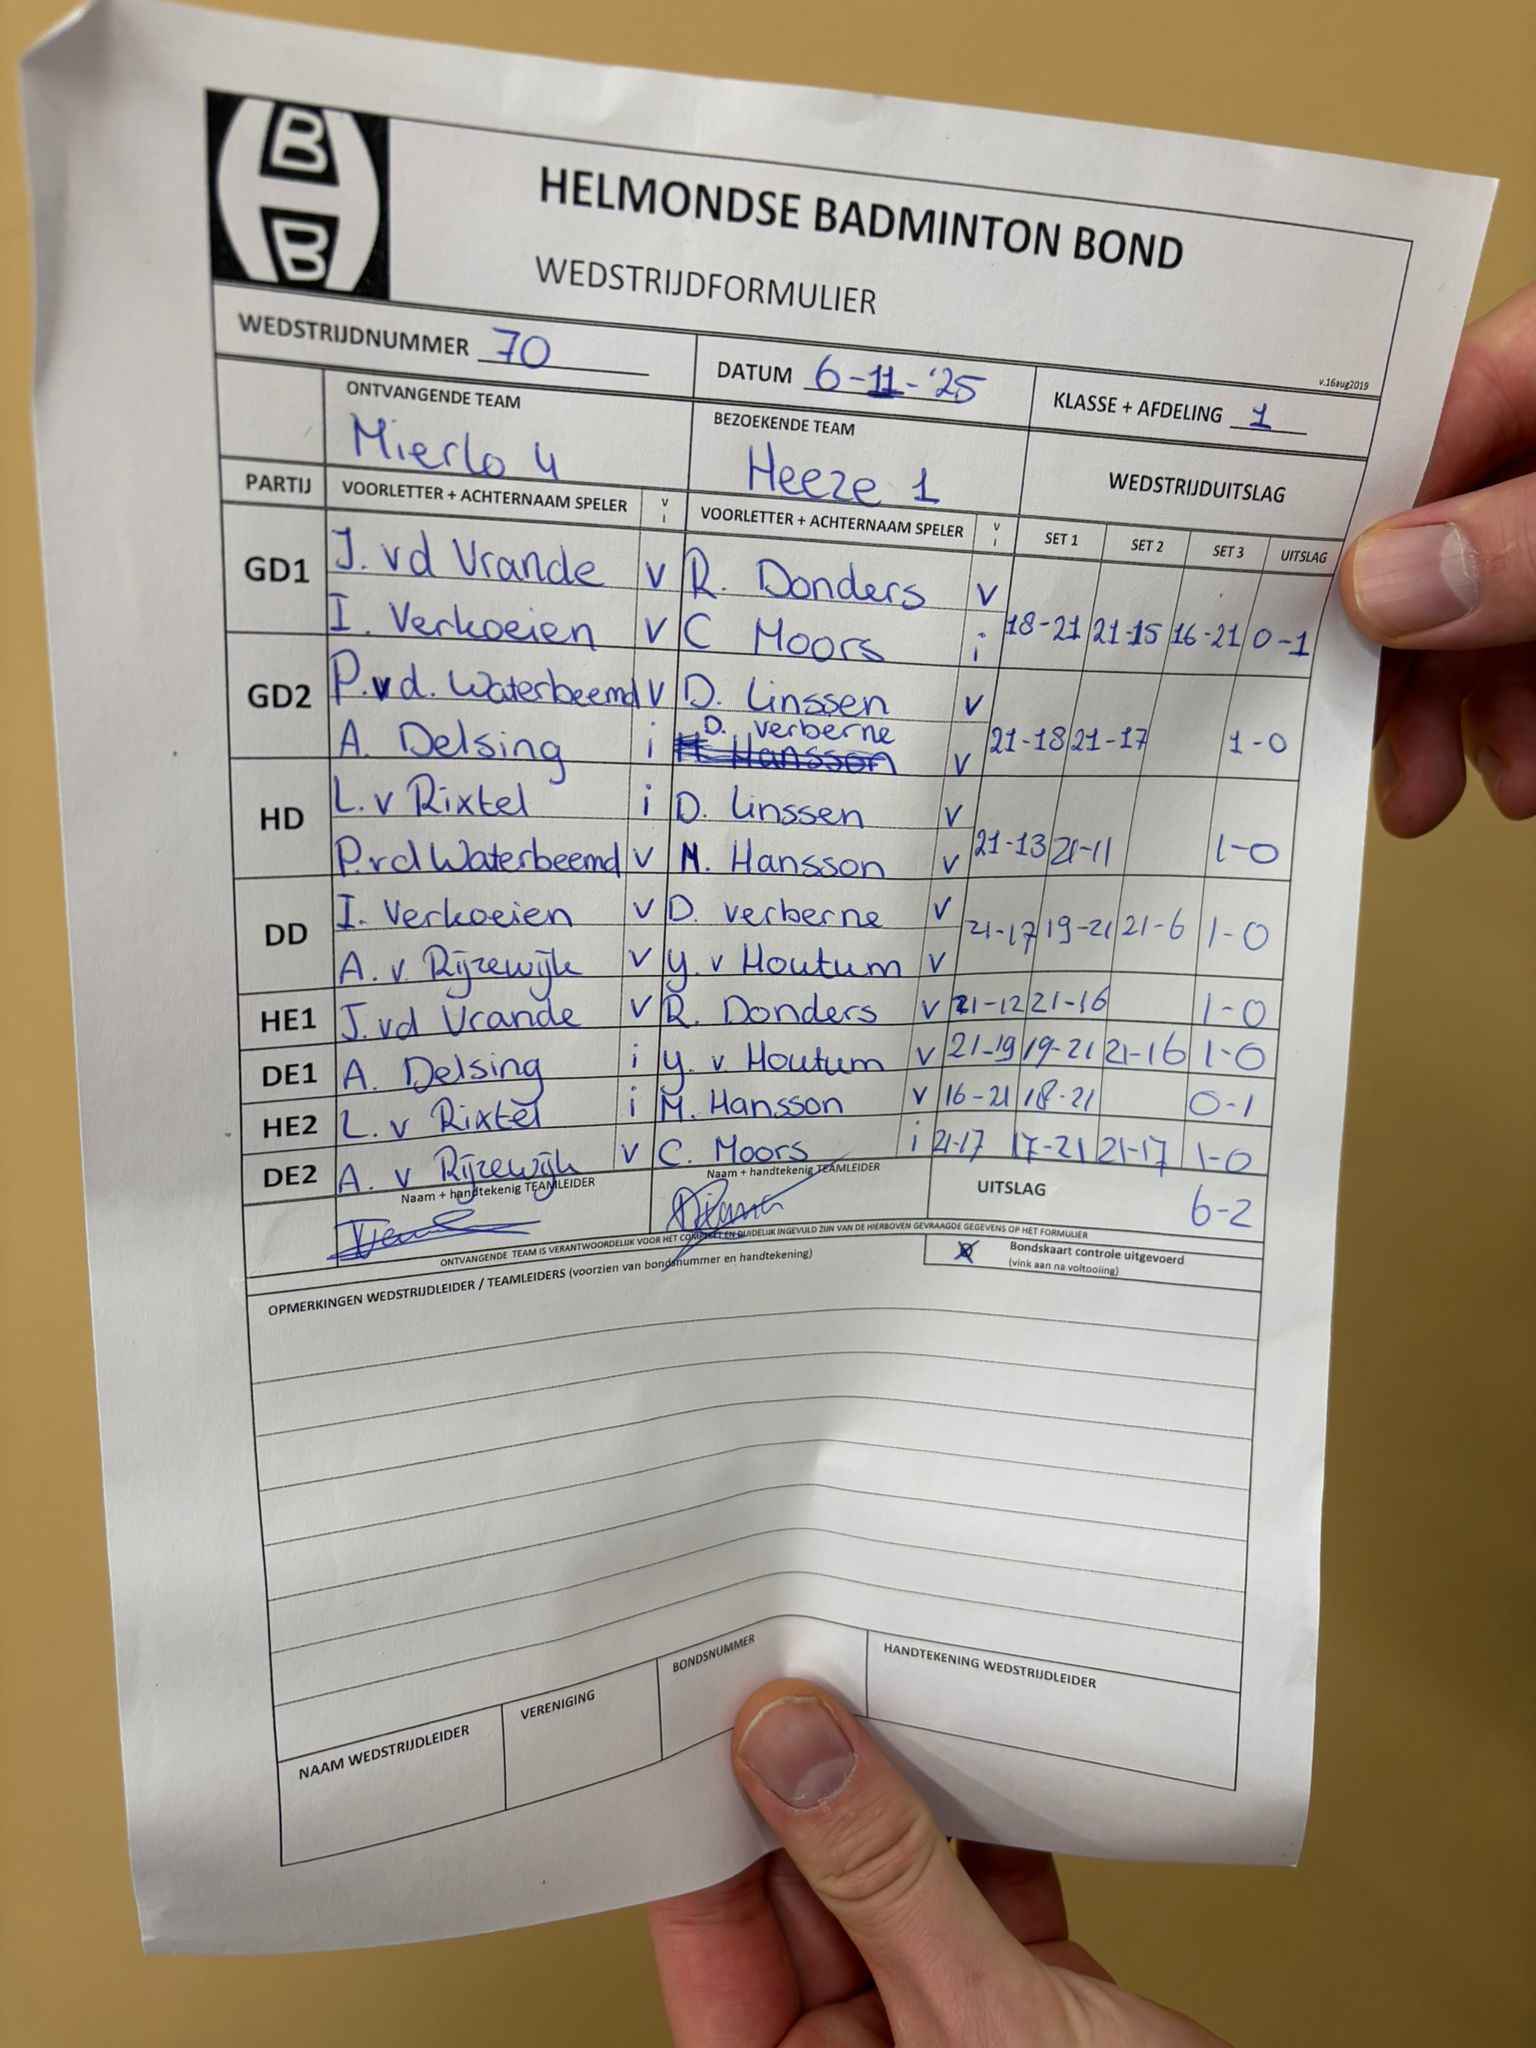 B
B
HELMONDSE BADMINTON BOND
WEDSTRIJDFORMULIER
v.16aug2019
WEDSTRIJDNUMMER 70 DATUM 6-11-'25 KLASSE + AFDELING 1
ONTVANGENDE TEAM BEZOEKENDE TEAM
Mierlo 4 Heeze 1 WEDSTRIJDUITSLAG
PARTIJ VOORLETTER + ACHTERNAAM SPELER v i VOORLETTER + ACHTERNAAM SPELER v i SET 1 SET 2 SET 3 UITSLAG
GD1 J. vd Vrande v R. Donders v
I. Verkoeien v C Moors i 18-21 21-15 16-21 0-1
GD2 P. v d. Waterbeemd v D. Linssen v
D. Verberne
A. Delsing i M Hansson v 21-18 21-17 1-0
HD L. v Rixtel i D. Linssen v
P.vd Waterbeemd v M. Hansson v 21-13 21-11 1-0
DD I. Verkoeien v D. Verberne v
A. v Rijzewijk v Y. v Houtum v 21-17 19-21 21-6 1-0
HE1 J. vd Vrande v R. Donders v 21-12 21-16 1-0
DE1 A. Delsing i Y. v Houtum v 21-19 19-21 21-16 1-0
HE2 L. v Rixtel i M. Hansson v 16-21 18-21 0-1
DE2 A. v Rijzewijk v C. Moors i 21-17 17-21 21-17 1-0
Naam + handtekenig TEAMLEIDER Naam + handtekenig TEAMLEIDER UITSLAG 6-2
ONTVANGENDE TEAM IS VERANTWOORDELIJK VOOR HET COMPLEET EN DUIDELIJK INGEVULD ZIJN VAN DE HIERBOVEN GEVRAAGDE GEGEVENS OP HET FORMULIER
Bondskaart controle uitgevoerd
(vink aan na voltooiing)
OPMERKINGEN WEDSTRIJDLEIDER / TEAMLEIDERS (voorzien van bondsnummer en handtekening)
NAAM WEDSTRIJDLEIDER VERENIGING BONDSNUMMER HANDTEKENING WEDSTRIJDLEIDER